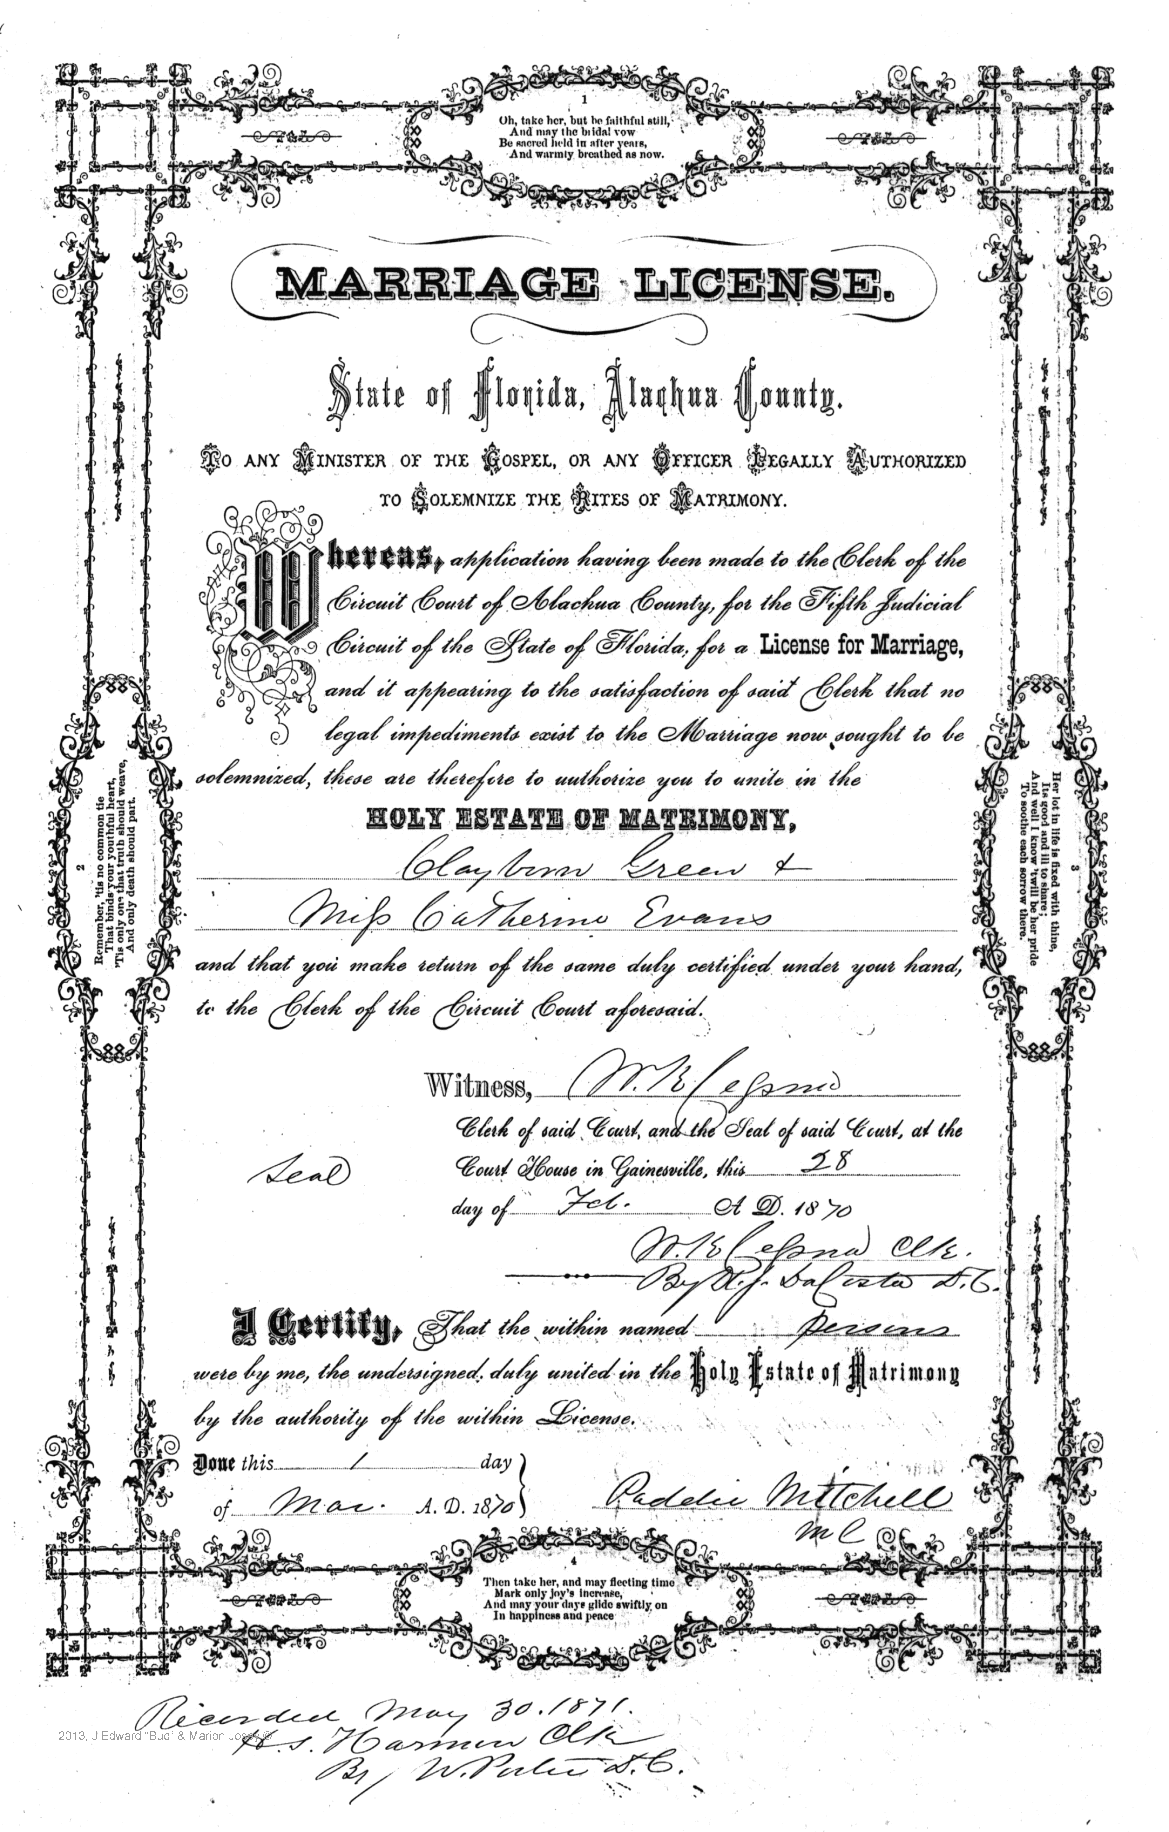 1
Oh, take her, but be faithful still,
And may the bridal vow
Be sacred held in after years,
And warmly breathed as now.
MARRIAGE LICENSE.
State of Florida, Alachua County.
TO ANY MINISTER OF THE GOSPEL, OR ANY OFFICER LEGALLY AUTHORIZED
TO SOLEMNIZE THE RITES OF MATRIMONY.
Whereas, application having been made to the Clerk of the
Circuit Court of Alachua County, for the Fifth Judicial
Circuit of the State of Florida, for a License for Marriage,
and it appearing to the satisfaction of said Clerk that no
legal impediments exist to the Marriage now sought to be
solemnized, these are therefore to authorize you to unite in the
HOLY ESTATE OF MATRIMONY,
Clayborn Green &
Miss Catherine Evans
and that you make return of the same duly certified under your hand,
to the Clerk of the Circuit Court aforesaid.
2
Remember, 'tis no common tie
That binds your youthful heart,
'Tis only one that truth should weave,
And only death should part.
3
Her lot in life is fixed with thine,
Its good and ill to share;
And well I know 'twill be her pride
To soothe each sorrow there.
Witness, W. K. Cessna
Clerk of said Court, and the Seal of said Court, at the
Seal
Court House in Gainesville, this 28
day of Feb. A D. 1870
W. K. Cessna Clk.
By R. J. DaCosta D.C.
I Certify, That the within named persons
were by me, the undersigned, duly united in the Holy Estate of Matrimony
by the authority of the within License.
Done this 1 day
of Mar. A. D. 1870
Mitchell
M C
4
Then take her, and may fleeting time
Mark only joy's increase,
And may your days glide swiftly on
In happiness and peace
Recorded May 30. 1871.
2013, J Edward "Bud" & Marion
H. S. Harmon Clk
By W. Porter D.C.